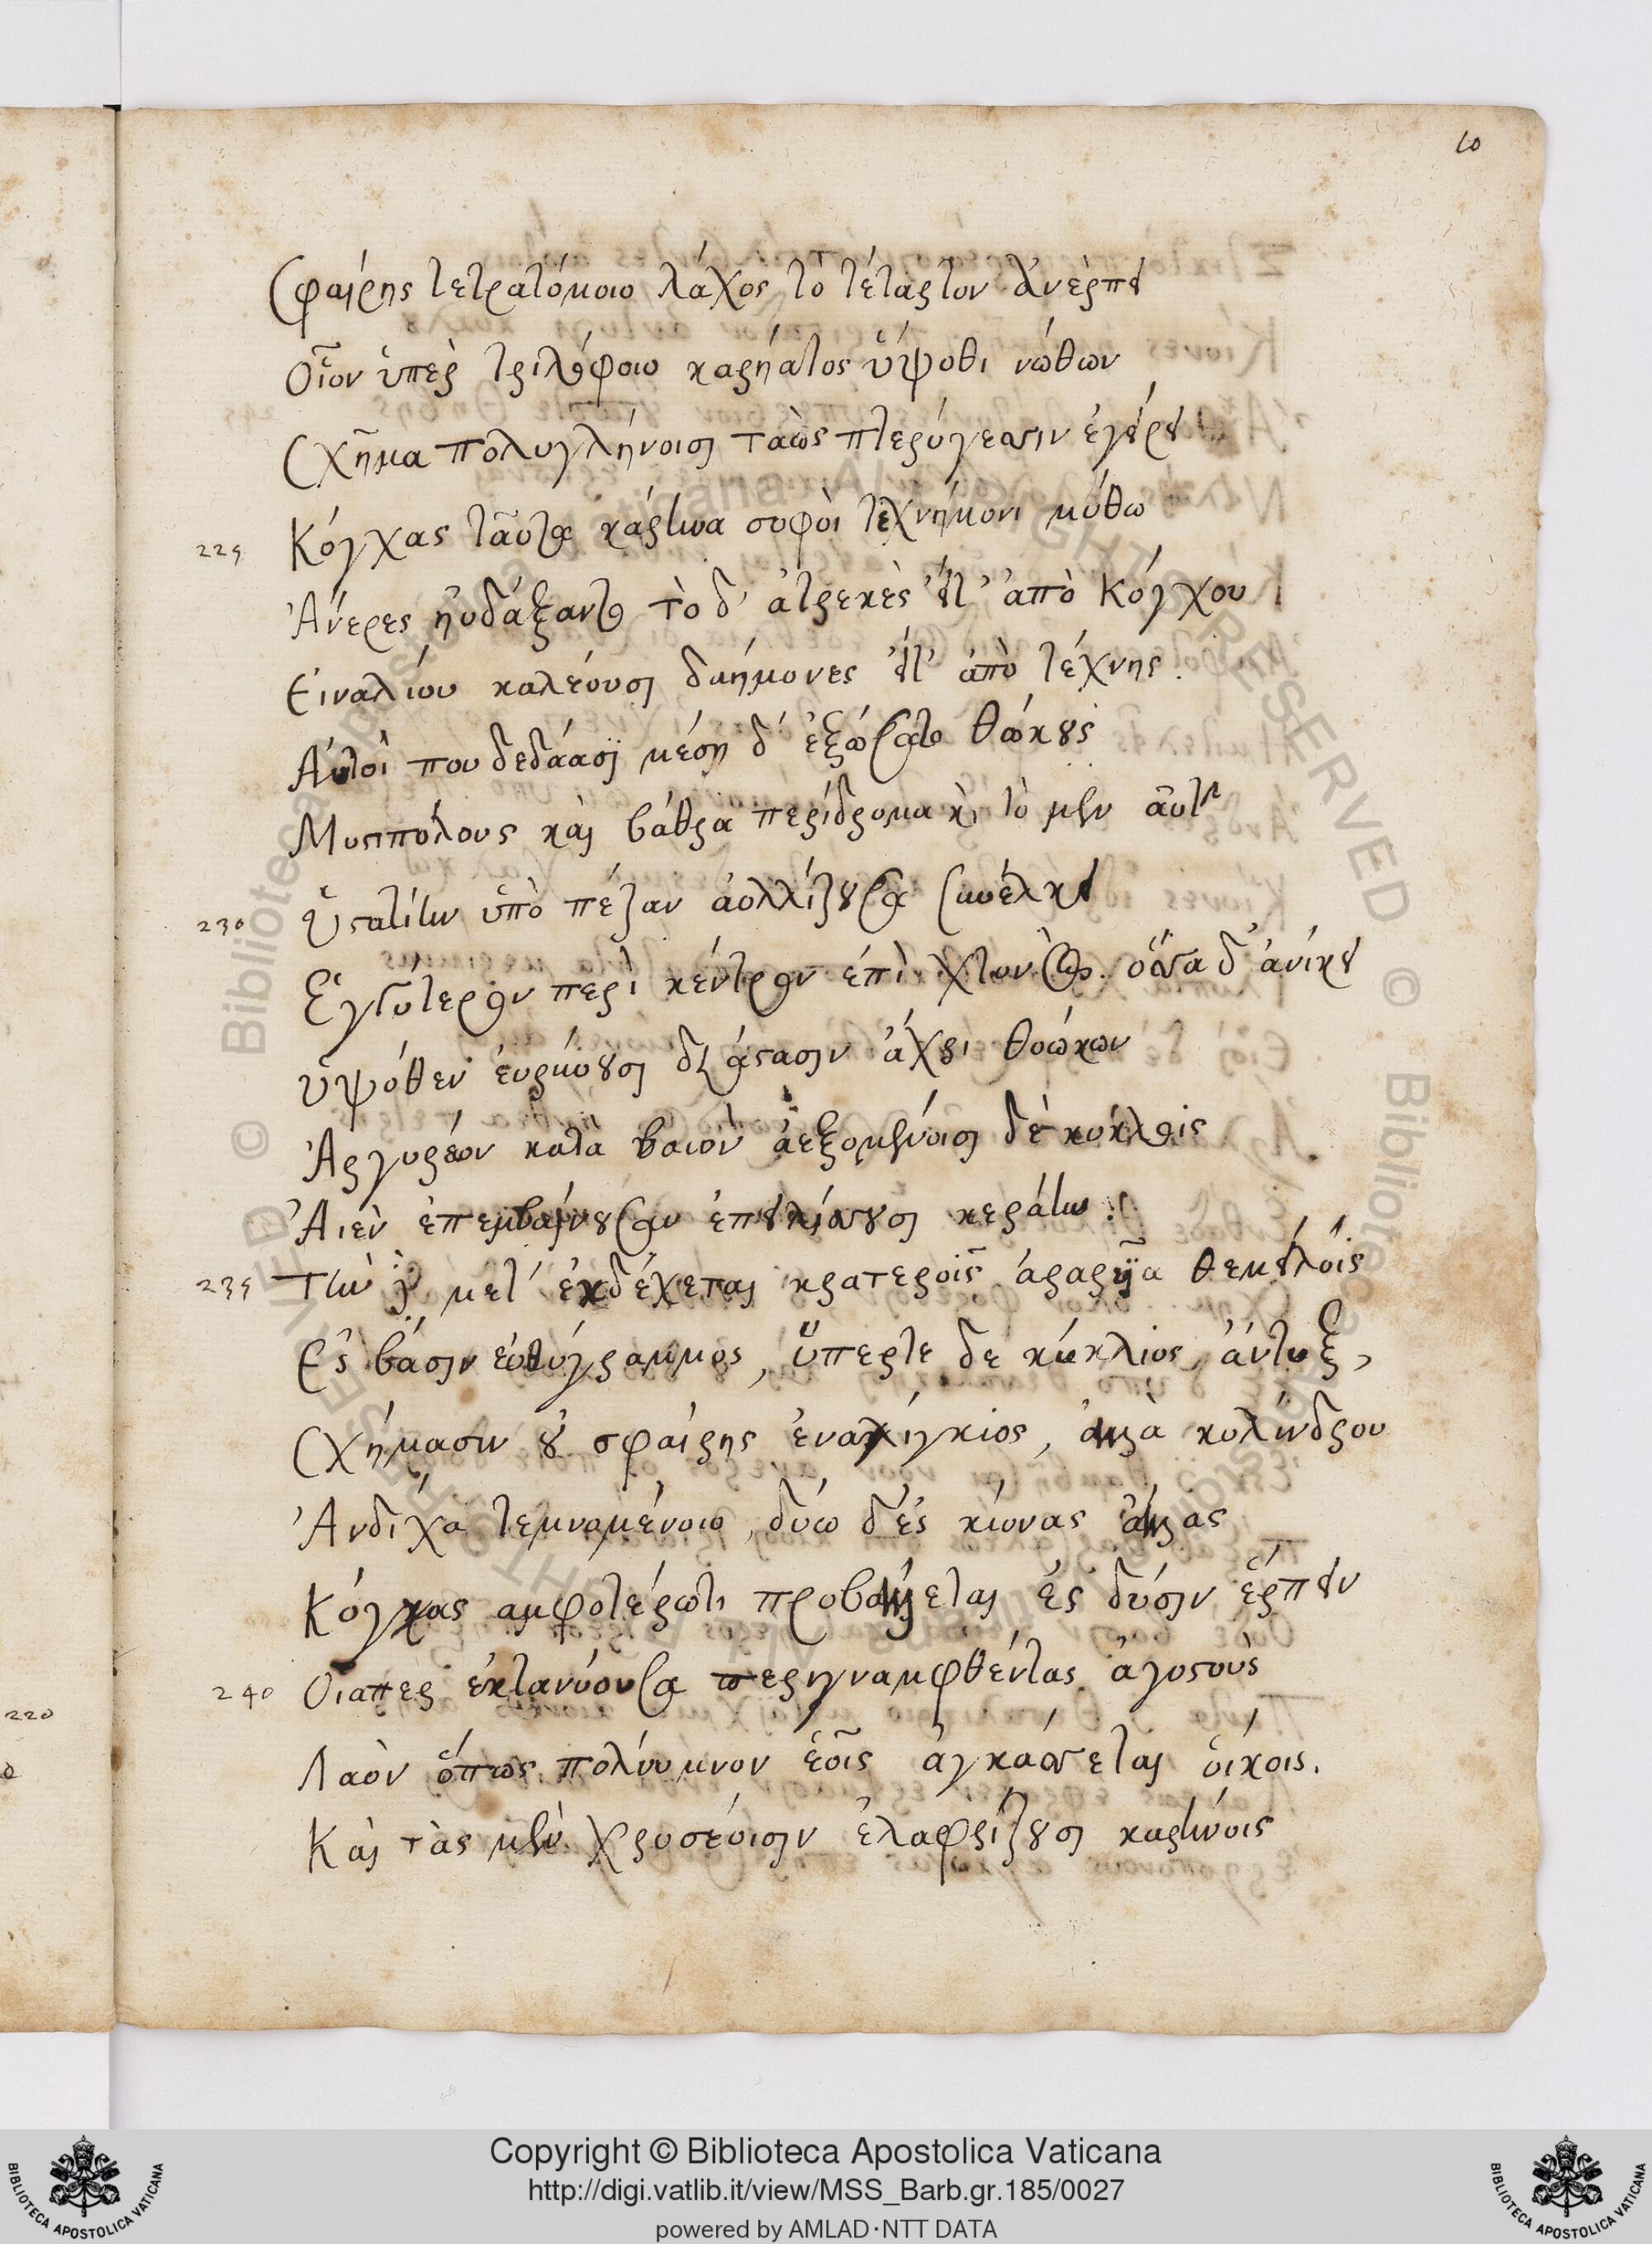 10
Σφαίρης τετρατόμοιο λάχος τὸ τέταρτον ἀνέρπει
Οἷον ὑπὲρ τριλόφοιο καρήατος ὑψόθι νώθων
Σχῆμα πολυγλήνοισι ταὼς πτερύγεσσιν ἐγείρει
225 Κόγχας ταῦτα κάρηνα σοφοὶ τεχνήμονι μύθω
Ἀνερες ηὐδάξαντο τὸ δ' ἀτρεκὲς εἴτ' ἀπὸ κόγχου
Εἰναλίου καλέουσι δαήμονες εἴτ' ἀπὸ τέχνης.
Αὐτοί που δεδάασι μέση δ' ἐζώσατο θώκους
Μυστιπόλους καὶ βάθρα περίδρομα καὶ τὸ μὲν αὐτῆς
230 Ὑστατίην ὑπὸ πέζαν ἀολλίζουσα συνέλκει
Ἐγγύτερον περὶ κέντρον ἐπὶ χθονός. ὅσσα δ' ἀνίκει
ὑψόθεν εὐρύουσι διάστασιν ἄχρι θοώκων
Ἀργυρέων κατὰ βαιὸν ἀεξομένοισι δὲ κύκλοις
Ἀιεν ἐπεμβαίνουσαν
235 Τὴν δὲ μετ' ἐκδέχεται κρατεροῖς ἀραρυῖα θεμείλοις
Ἐς βάσιν εὐθύγραμμος, ὕπερτε δὲ κύκλιος ἄντυξ,
Σχήμασιν οὐ σφαίρης ἐναλίγκιος, ἀλλὰ κυλίνδρου
Ἀνδίχα τεμνομένοιο, δύω δ' ἐς κίονας ἄλλας
Κόγχας ἀμφοτέρωθι προβάλλεται ἐς δύσιν ἕρπειν
240 Οἷαπερ ἐκτανύουσα περιγναμφθέντας ἀγοστοὺς
Λαὸν ὅπως πολύυμνον ἑοῖς ἀγκάσσεται οἴκοις.
Καὶ τὰς μὲν χρυσέοισιν ἐλαφρίζουσι καρήνοις
220
Copyright © Biblioteca Apostolica Vaticana
http://digi.vatlib.it/view/MSS_Barb.gr.185/0027
powered by AMLAD·NTT DATA
BIBLIOTECA APOSTOLICA VATICANA
BIBLIOTECA APOSTOLICA VATICANA